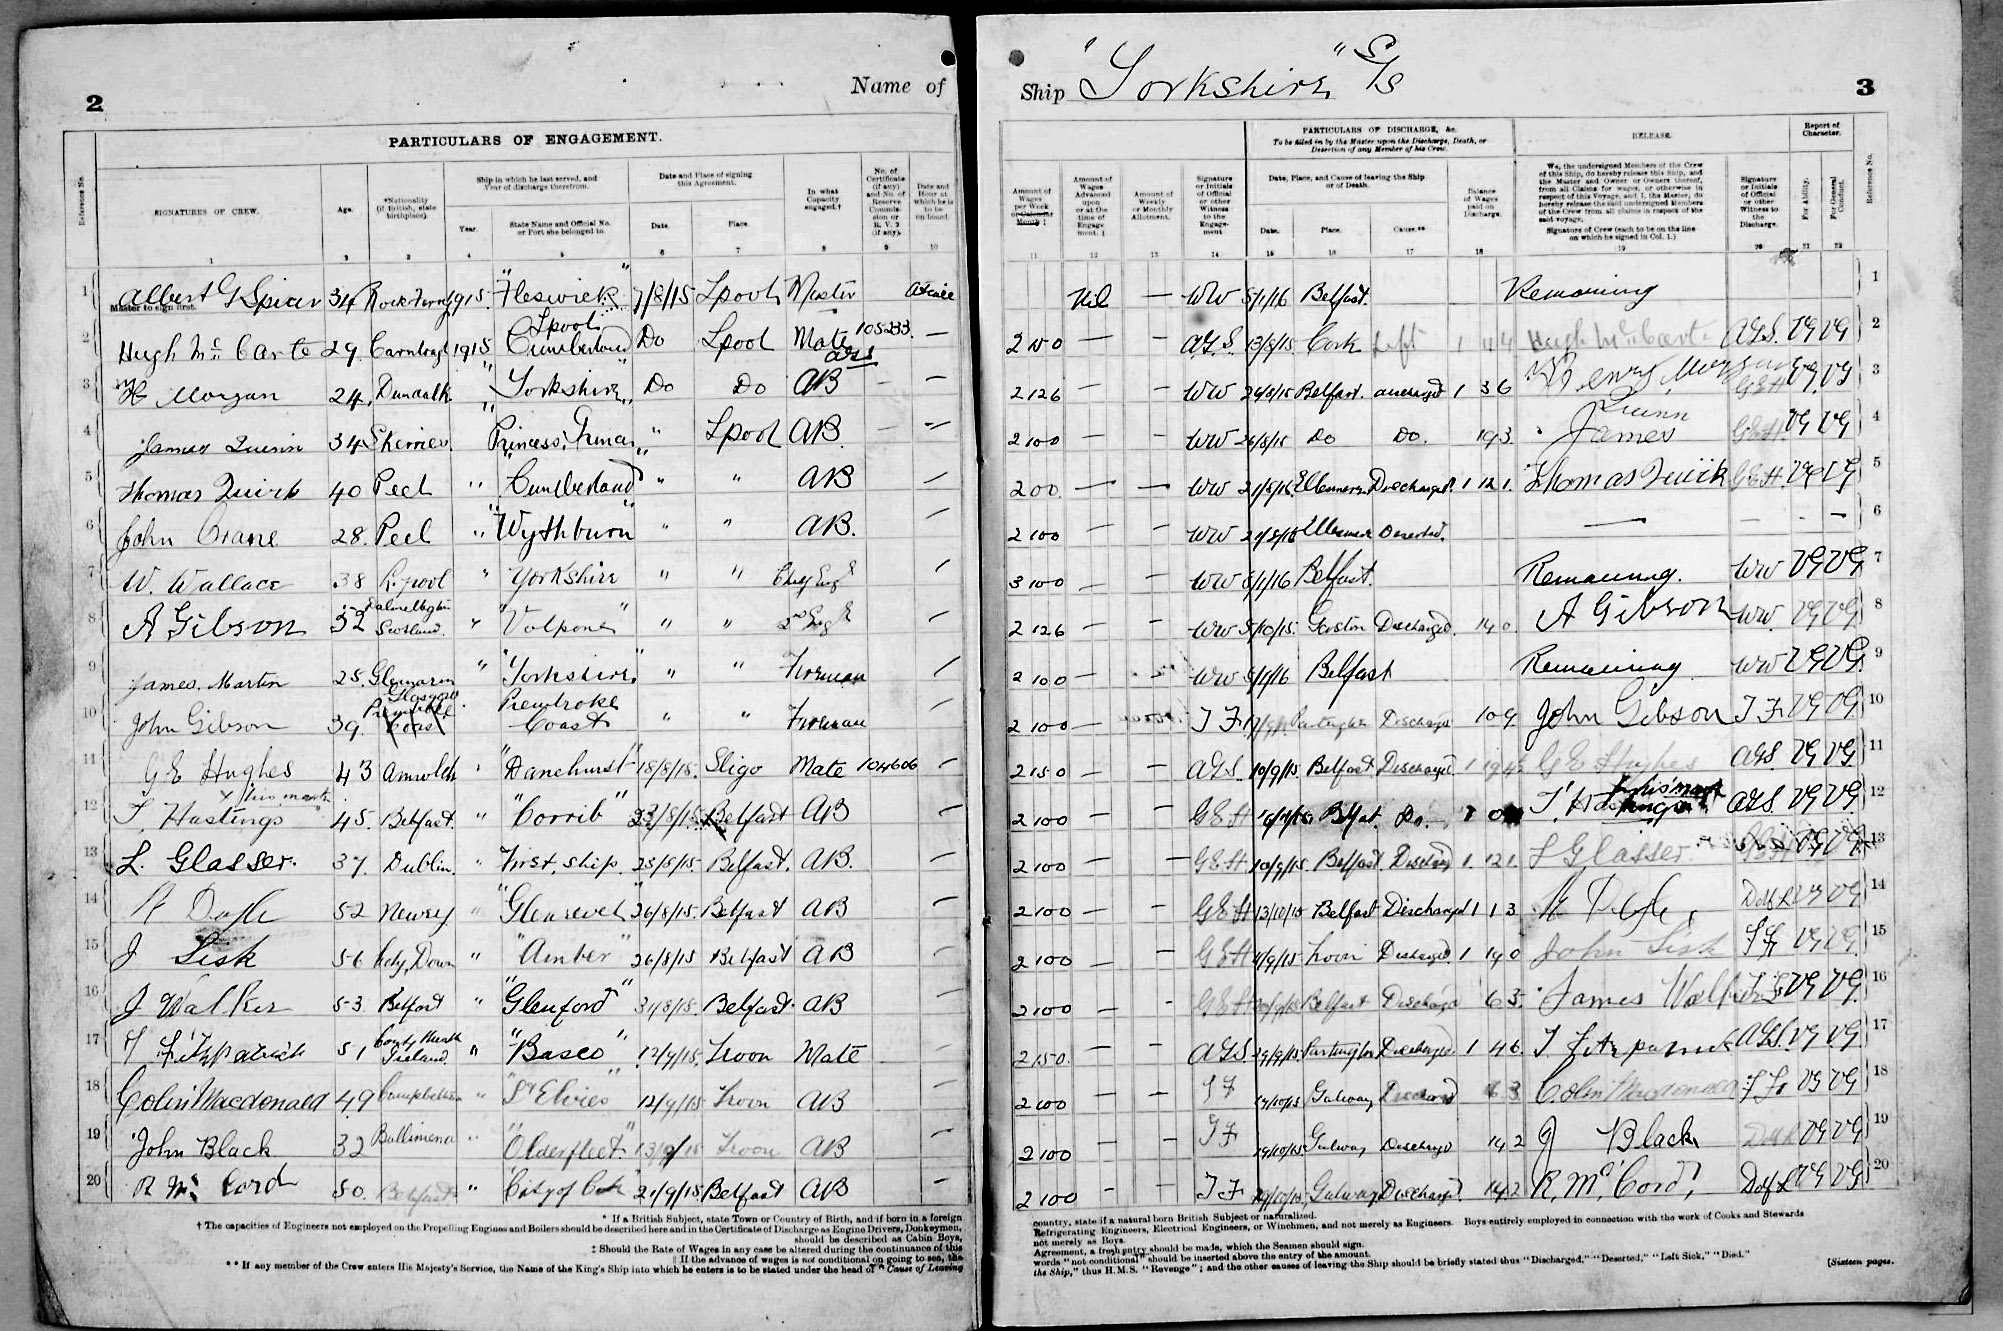 2
Name of
Ship "Yorkshire" S/s
3
PARTICULARS OF ENGAGEMENT.
PARTICULARS OF DISCHARGE, &c.
To be filled in by the Master upon the Discharge, Death, or Desertion of any Member of his Crew.
RELEASE.
Report of Character.
Reference No.
SIGNATURES OF CREW.
Age.
*Nationality (if British, state birthplace).
Ship in which he last served, and Year of discharge therefrom.
Year.
State Name and Official No. or Port she belonged to.
Date and Place of signing this Agreement.
Date.
Place.
In what Capacity engaged.†
No. of Certificate (if any) and No. of Reserve Commission or R.V.2 (if any).
Date and Hour at which he is to be on board.
Amount of Wages per Week or Calendar Month ‡
Amount of Wages Advanced upon or at the time of Engagement.
Amount of Weekly or Monthly Allotment.
Signature or Initials of Official or other Witness to the Engagement
Date, Place, and Cause of leaving the Ship or of Death.
Date.
Place.
Cause.**
Balance of Wages paid on Discharge.
We, the undersigned Members of the Crew of this Ship, do hereby release this Ship, and the Master and Owner or Owners thereof, from all Claims for wages, or otherwise in respect of this Voyage, and I, the Master, do hereby release the undersigned Members of the Crew from all claims in respect of the said voyage.
Signature of Crew (each to be on the line on which he signed in Col. 1.)
Signature or Initials of Official or other Witness to the Discharge.
For Ability.
For General Conduct.
Reference No.
1 2 3 4 5 6 7 8 9 10 11 12 13 14 15 16 17 18 19 20 21 22
1 Albert G Spicer 34 Rock Ferry 1915 "Fleswick" L'pool 7/8/15 Lpool Master Nil — WW 5/1/16 Belfast. Remaining 1
Master to sign first.
2 Hugh McCarte 29 1915 "Cumberland" Do Lpool Mate 105233 — AGS 2 15 0 — — A.G.S. 13/8/15 Cork Left Hugh McCarte AGS. VG VG 2
3 H Morgan 24 Dundalk. "Yorkshire" Do Do AB — — 2 12 6 — — WW 24/8/15 Belfast. 1 3 6 Henry Morgan GEH VG VG 3
4 James Quinn 34 Skerries. Princess Irma " Lpool AB. — — 2 10 0 — — WW 26/8/15 Do Do. 19 3. James Quinn GEH VG VG 4
5 Thomas Quirk 40 Peel " "Cumberland" " " AB — 2 0 0. — — WW 21/8/15 Discharged. 1 12 1. Thomas Quirk GEH. VG VG 5
6 John Crane 28. Peel " "Wythburn" " " AB. — 2 10 0 — — WW 21/8/15 Deserted. — — - — 6
7 W. Wallace 38 " Yorkshire " " Chief Engr — 3 10 0 — — WW 5/1/16 Belfast. Remaining. WW VG VG 7
8 A Gibson 32 Dalmellington Scotland. " "Volpone" " " 2nd Engr — 2 12 6 — — WW 5/10/15. Garston Discharged. 14 0. A Gibson WW. VG VG 8
9 James Martin 25. Glenarm " "Yorkshire" " " Fireman — 2 10 0 — WW 5/1/16 Belfast Remaining WW VG VG. 9
10 John Gibson 39. Glasgow Pembroke Coast " " Fireman — 2 10 0 — T F Partington Discharge 10 9. John Gibson T F. VG VG 10
11 G E Hughes 43 Amwlch " "Danehurst" 18/8/15. Sligo Mate 104606 — 2 15 0 — — AGS. 10/9/15. Belfast Discharged G E Hughes AGS. VG VG 11
12 T. Hastings x his mark 45. Belfast. " "Corrib" 23/8/15. Belfast AB — 2 10 0 — — GEH Belfast. Do. T. Hastings his mark AGS VG VG 12
13 L. Glasser. 37. Dublin. " First ship. 25/8/15. Belfast. AB. — 2 10 0 — — GEH 10/9/15. Belfast Discharged 1. 12 1. L Glasser VG VG 13
14 52 Newry " 26/8/15. Belfast AB — 2 10 0 — — GEH 13/10/15 Belfast Discharged 1 1 3 VG VG 14
15 J Sisk 56 Down " "Amber" 26/8/15 Belfast AB — 2 10 0 — GEH 11/9/15. Troon Discharged. 1 19 0 John Sisk TF VG VG 15
16 J Walker 53. Belfast " "Glenford" 31/8/15. Belfast. AB — 2 10 0 — - GEH Belfast Discharge 6 3. James Walker VG VG. 16
17 T Fitzpatrick 51 County Meath Ireland. " "Basco" 12/9/15. Troon Mate — 2 15 0. — — AGS. 29/9/15. Partington Discharged 1 4 6. T Fitzpatrick AGS. VG VG 17
18 Colin Macdonald 49 Campbeltown " "St Elvies" 12/9/15 Troon AB — 2 10 0 — — T F 19/10/15 Galway Discharged 6 3 Colin Macdonald T F. VG VG 18
19 John Black 32 Ballimena " "Olderfleet" 13/9/15 Troon AB — 2 10 0 — — T F 19/10/15 Galway Discharged 14 2 J Black VG VG 19
20 R McCord 50. Belfast " "City of Cork" 21/9/15. Belfast AB — 2 10 0 — — T F 19/10/15. Galway Discharged. 14 2 R. McCord VG VG 20
* If a British Subject, state Town or Country of Birth, and if born in a foreign country, state if a natural born British Subject or naturalized.
† The capacities of Engineers not employed on the Propelling Engines and Boilers should be described here and in the Certificate of Discharge as Engine Drivers, Donkeymen, Refrigerating Engineers, Electrical Engineers, or Winchmen, and not merely as Engineers. Boys entirely employed in connection with the work of Cooks and Stewards
should be described as Cabin Boys, not merely as Boys.
‡ Should the Rate of Wages in any case be altered during the continuance of this Agreement, a fresh entry should be made, which the Seamen should sign.
|| If the advance of wages is not conditional on going to sea, the words "not conditional" should be inserted above the entry of the amount.
** If any member of the Crew enters His Majesty's Service, the Name of the King's Ship into which he enters is to be stated under the head of "Cause of Leaving the Ship," thus H.M.S. "Revenge"; and the other causes of leaving the Ship should be briefly stated thus "Discharged," "Deserted," "Left Sick," "Died."
[Sixteen pages.